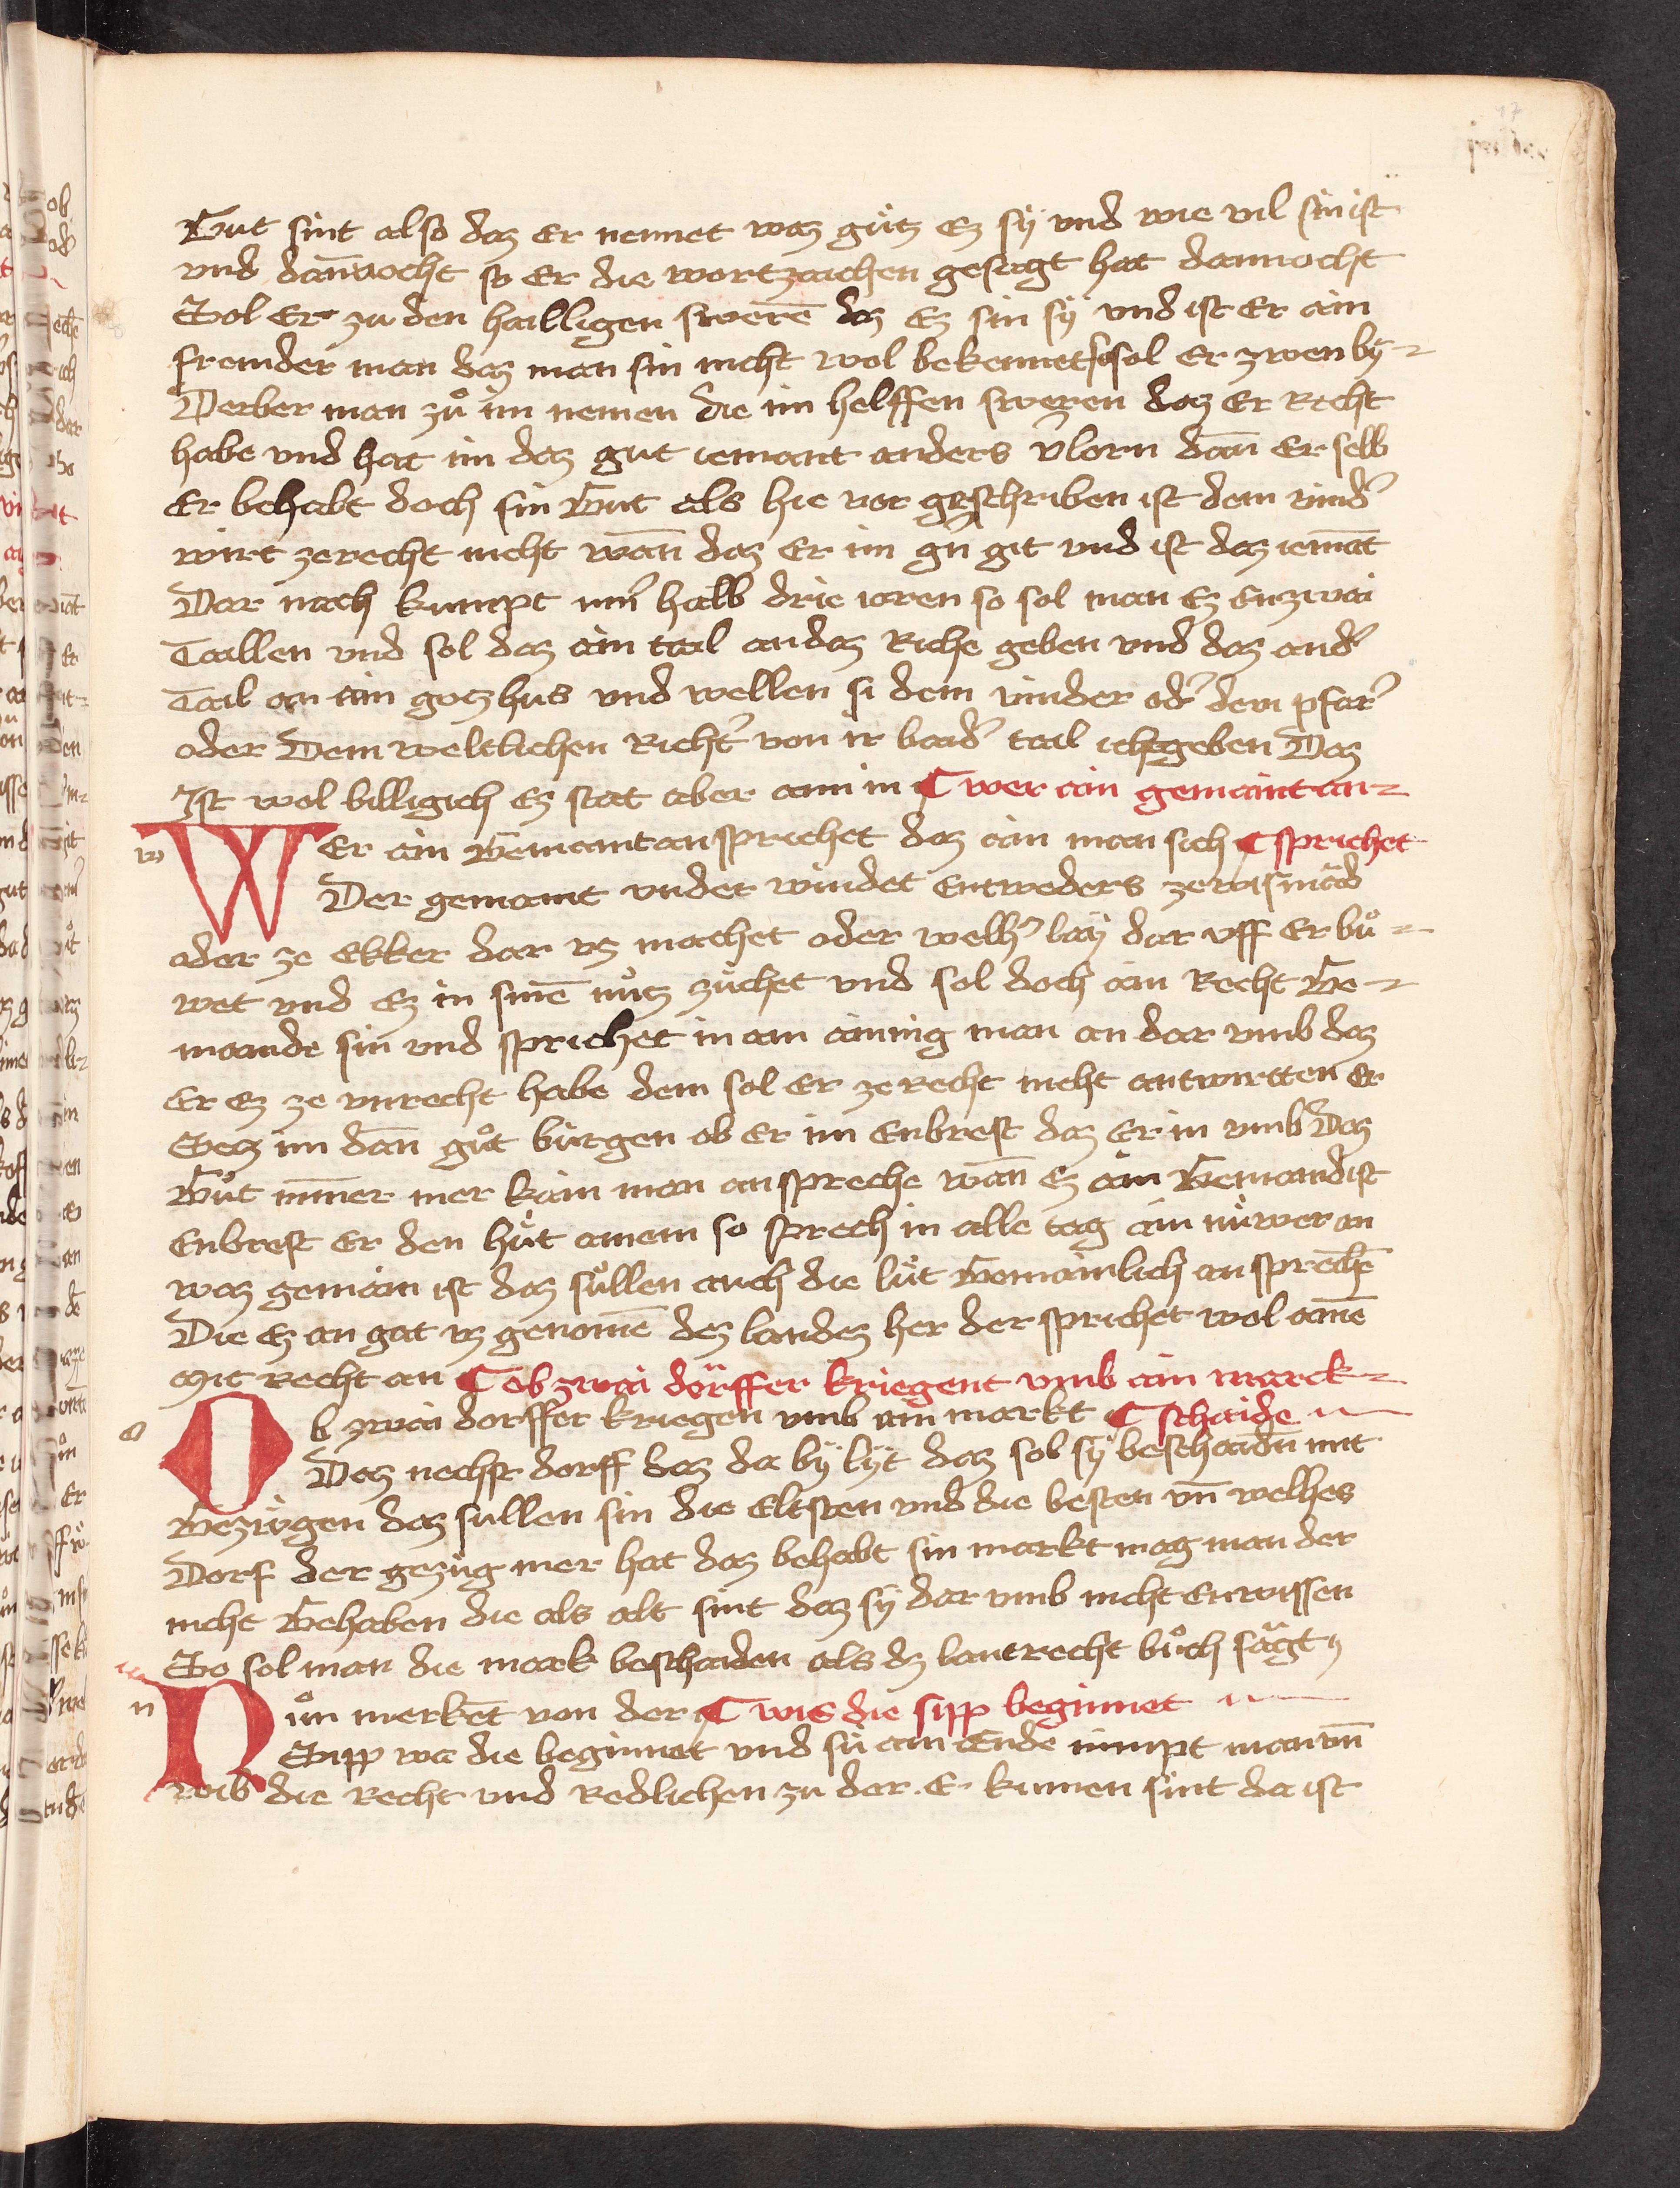 47
Gut sint also daz Er nennet waz gůtz Ez sÿ vnd wie vil sin ist
vnd dan̄nocht so Er die wortzaichen gesagt hat dannocht
Sol Er zu den hailligen swerē daz Ez sin sÿ vnd ist Er ain
fremder man daz man sin nicht wol bekennet so sol Er zwen by-
Derber man zů im nemen die im helffen sweren daz Er Recht
habe vnd hat im daz gut iemant anders v̓lorn dan̄ Er selb
Er behabt doch sin Gut als hie vor geschriben ist dem vind̓
wirt zerecht nicht wan̄ daz Er im gn̄ git vnd ist daz iemāt
Dar nach kumpt inn̓ halb drie iaren so sol man Ez Enzwai
Taillen vnd sol daz ain tail an daz Riche geben vnd daz and̓
Tail an ain gotzhus vnd wellen si dem vinder od̓ dem pfar̓
oder Dem weltlichen Richt̓ von ir baid̓ tail ichtz geben Daz
Ist wol billigich Ez stat aber ann in ¶ wer ain gemaint an-
w WEr ain Gemaint an sprichet daz ain man sich ¶ sprichet
Der gemaint vnder windet Entweders ze wismād
oder ze Ekker dar vz machet oder welh̓ lay dar vff Er bů-
wet vnd Ez in sinē nůtz zůchet vnd sol doch ain Recht Ge-
mainde sin vnd sprichet in ain aininig man an dar vmb daz
Er Ez ze vnrecht habe dem sol Er ze recht nicht antwurtten Er
Setz im dan̄ gůt bürgen ob Er im Enbrest daz Er in vmb Daz
Gůt im̄er mer kain man an spreche wan̄ Ez ain Gemaind ist
Enbrest Er den hůt ainem so sprech in alle tag ain nůwer an
waz gemain ist daz sůllen auch die lůt Gemainlich an sprechē
Die Ez an gat vz genomē dez landez her der sprichet wol ainē
mit Recht an ¶ ob zwai dörffer kriegent vmb ain marck-
o Ob zwai dorffer kriegen vmb ain markt ¶ schaide
Daz nechst dorff daz da bÿ lÿt daz sol sÿ beschaidn̄ mit
Gezügen daz sullen sin die Eltsten vnd die besten vn̄ welhes
Dorf der gezüg mer hat daz behabt sin markt mag man der
nicht Gehaben die als alt sint daz sÿ dar vmb nicht Enwissen
So sol man die mark beschaiden als dz lantrecht bůch sägt
n Nůn merkēt von der ¶ wie die sipp beginnet
Sipp wa die beginnet vnd sü ain Ende nimpt man vn̄
wib die Recht vnd Redlichen zu der . E . kumen sint da ist